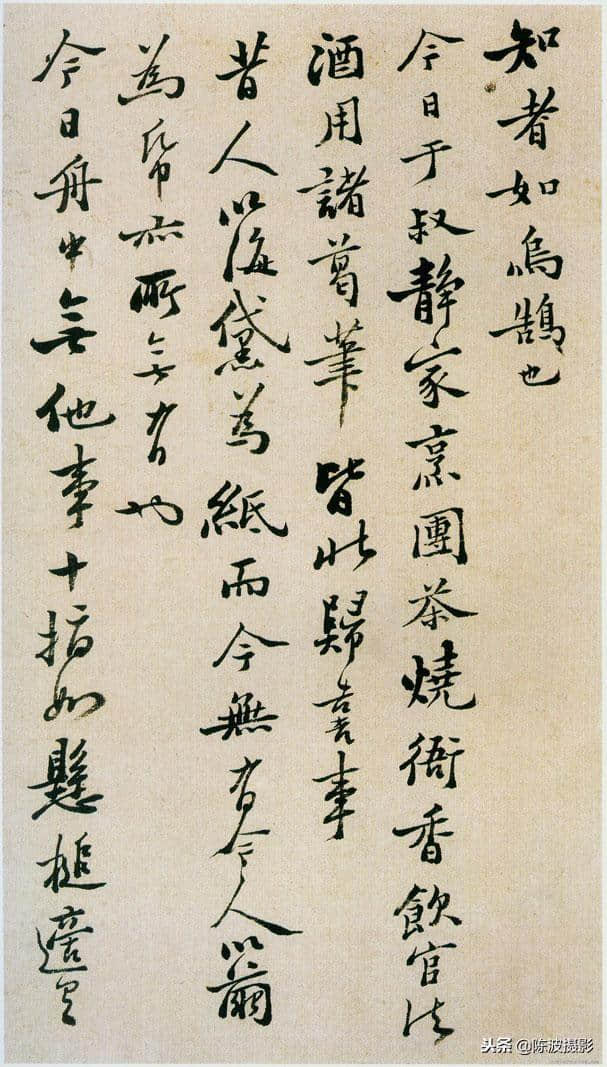 知者如烏鵲也
今日于叔靜家烹團茶燒衙香飲官法
酒用諸葛筆皆此歸喜事
昔人以海黛為紙而今無有今人以繭
為帋亦所無有也
今日舟中無他事十指如懸槌適有
头条 @陈波摄影